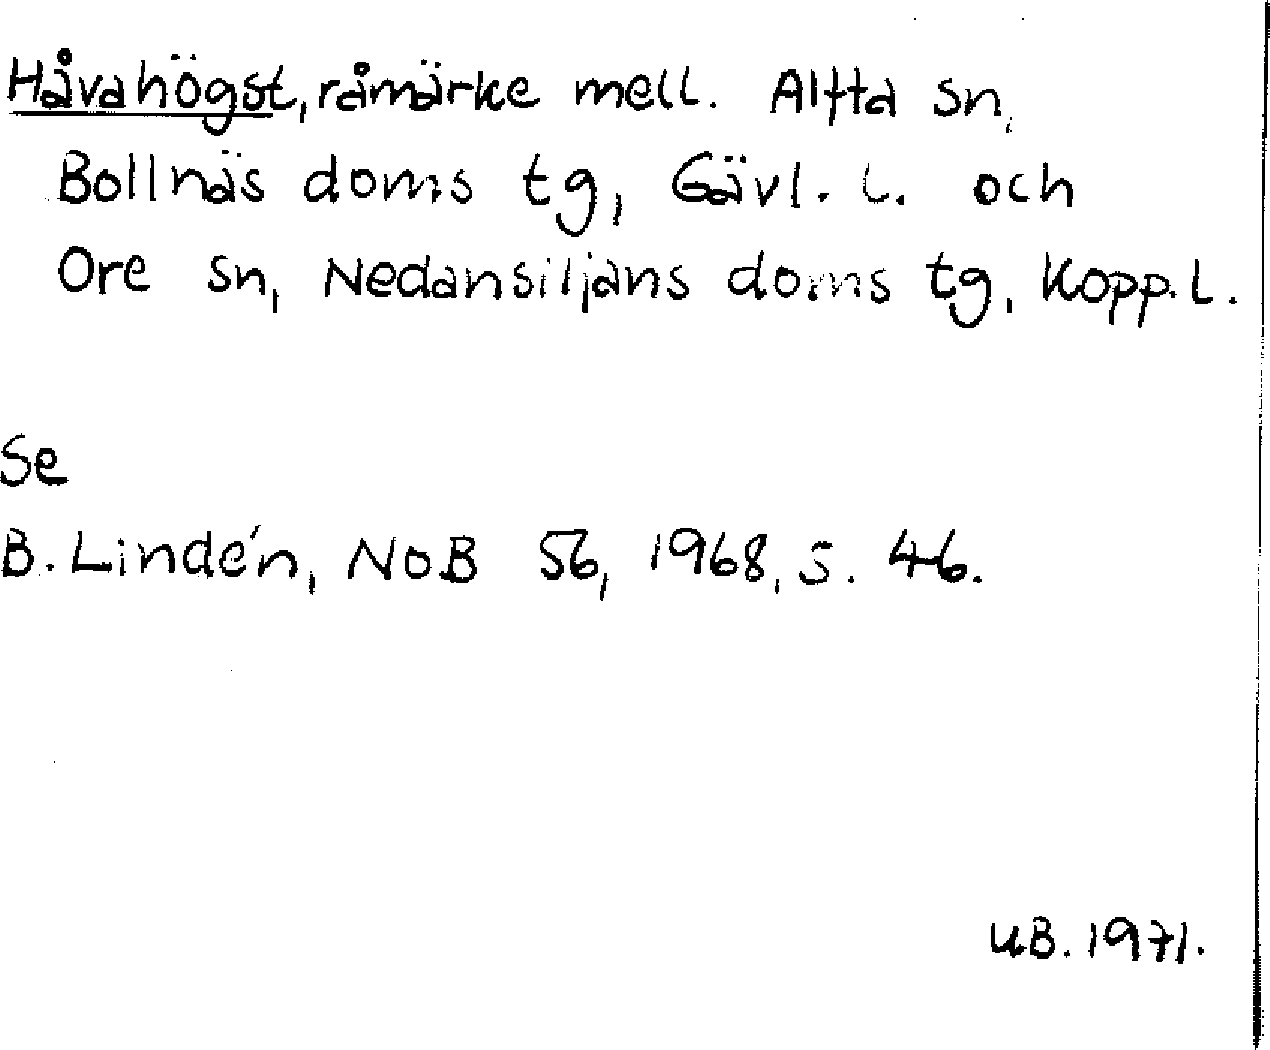 Håvahögst, råmärke mell. Alfta sn,
Bollnäs doms tg, Gävl. L. och
Ore sn, Nedansiljans doms tg, Kopp. L.
Se
B. Lindén, NoB 56, 1968, s. 46.
UB. 1971.